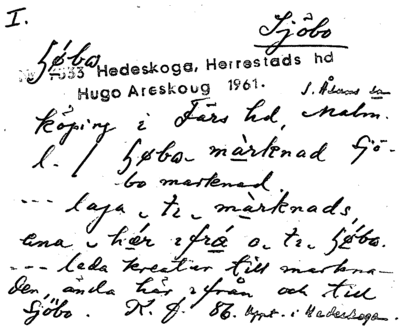 I.
Sjöbo
ʃøba
Nr 1033 Hedeskoga, Herrestads hd
Hugo Areskoug 1961.
köping i Färs hd, Malm.
l. / ʃøba marknad Sjö-
bo marknad.
--- laja, tɛ, marknads,
ana, hær ifrå o, tɛ, ʃøba.
--- leda kreatur till markna-
den, ända här ifrån och till
Sjöbo. K. f. 86. Uppt. i Hedeskoga.